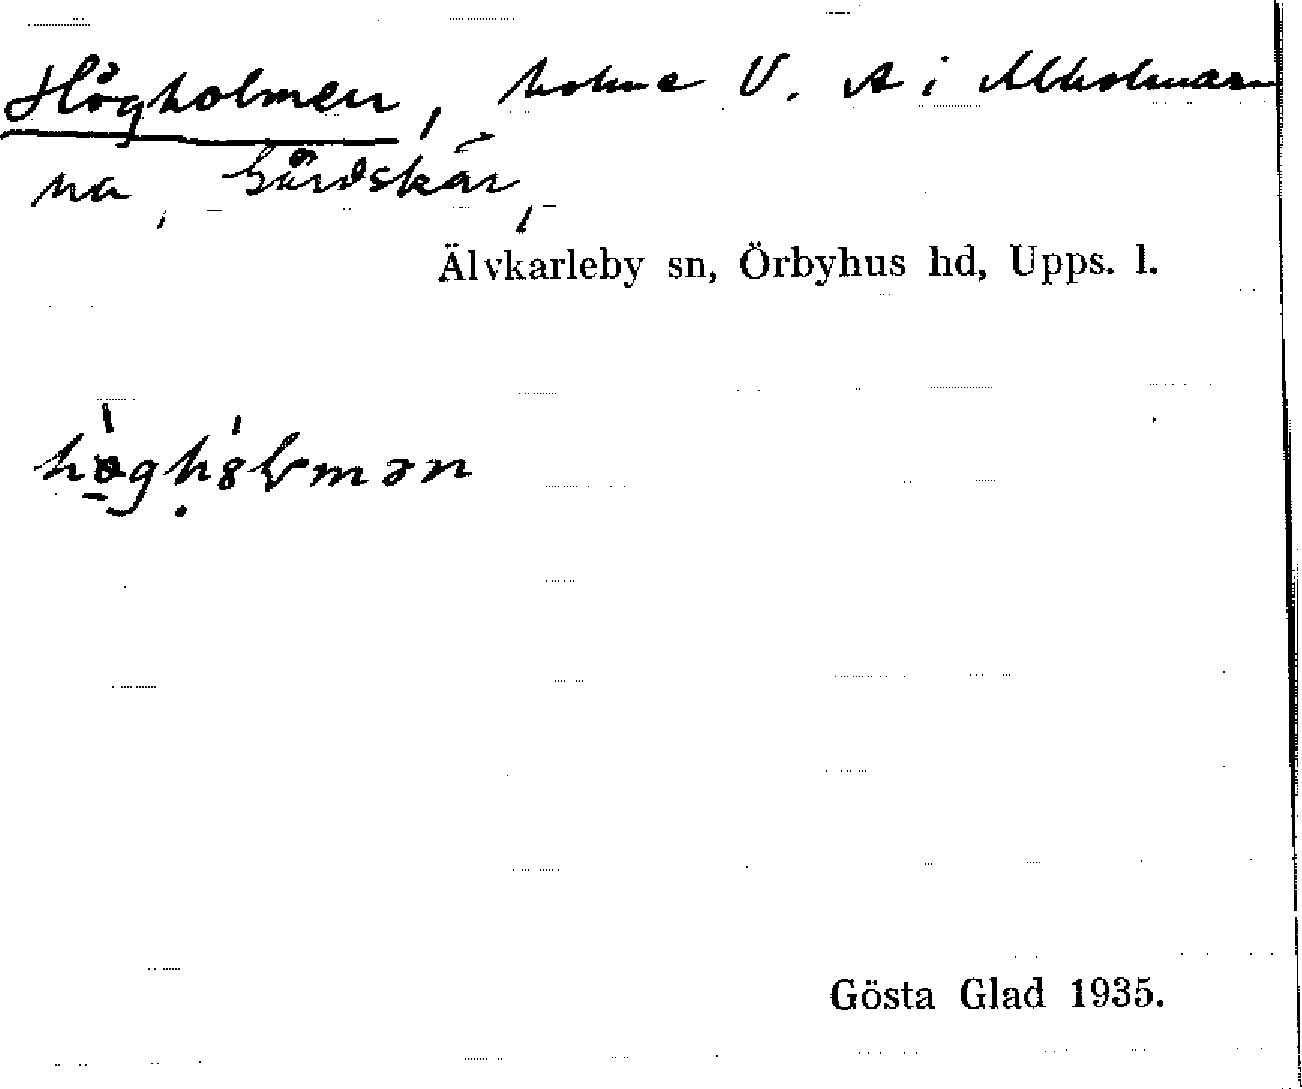 Högholmen, holme V. A i Alholmar-
na, Gårdskär,
Älvkarleby sn, Örbyhus hd, Upps. l.
Gösta Glad 1935.